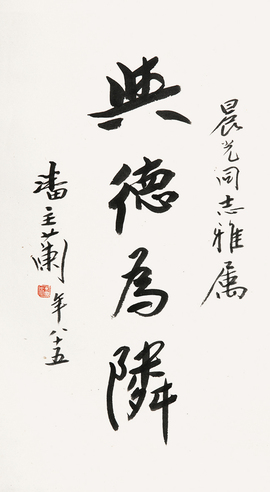 晨光同志雅属
與德為隣
潘主蘭年八十五